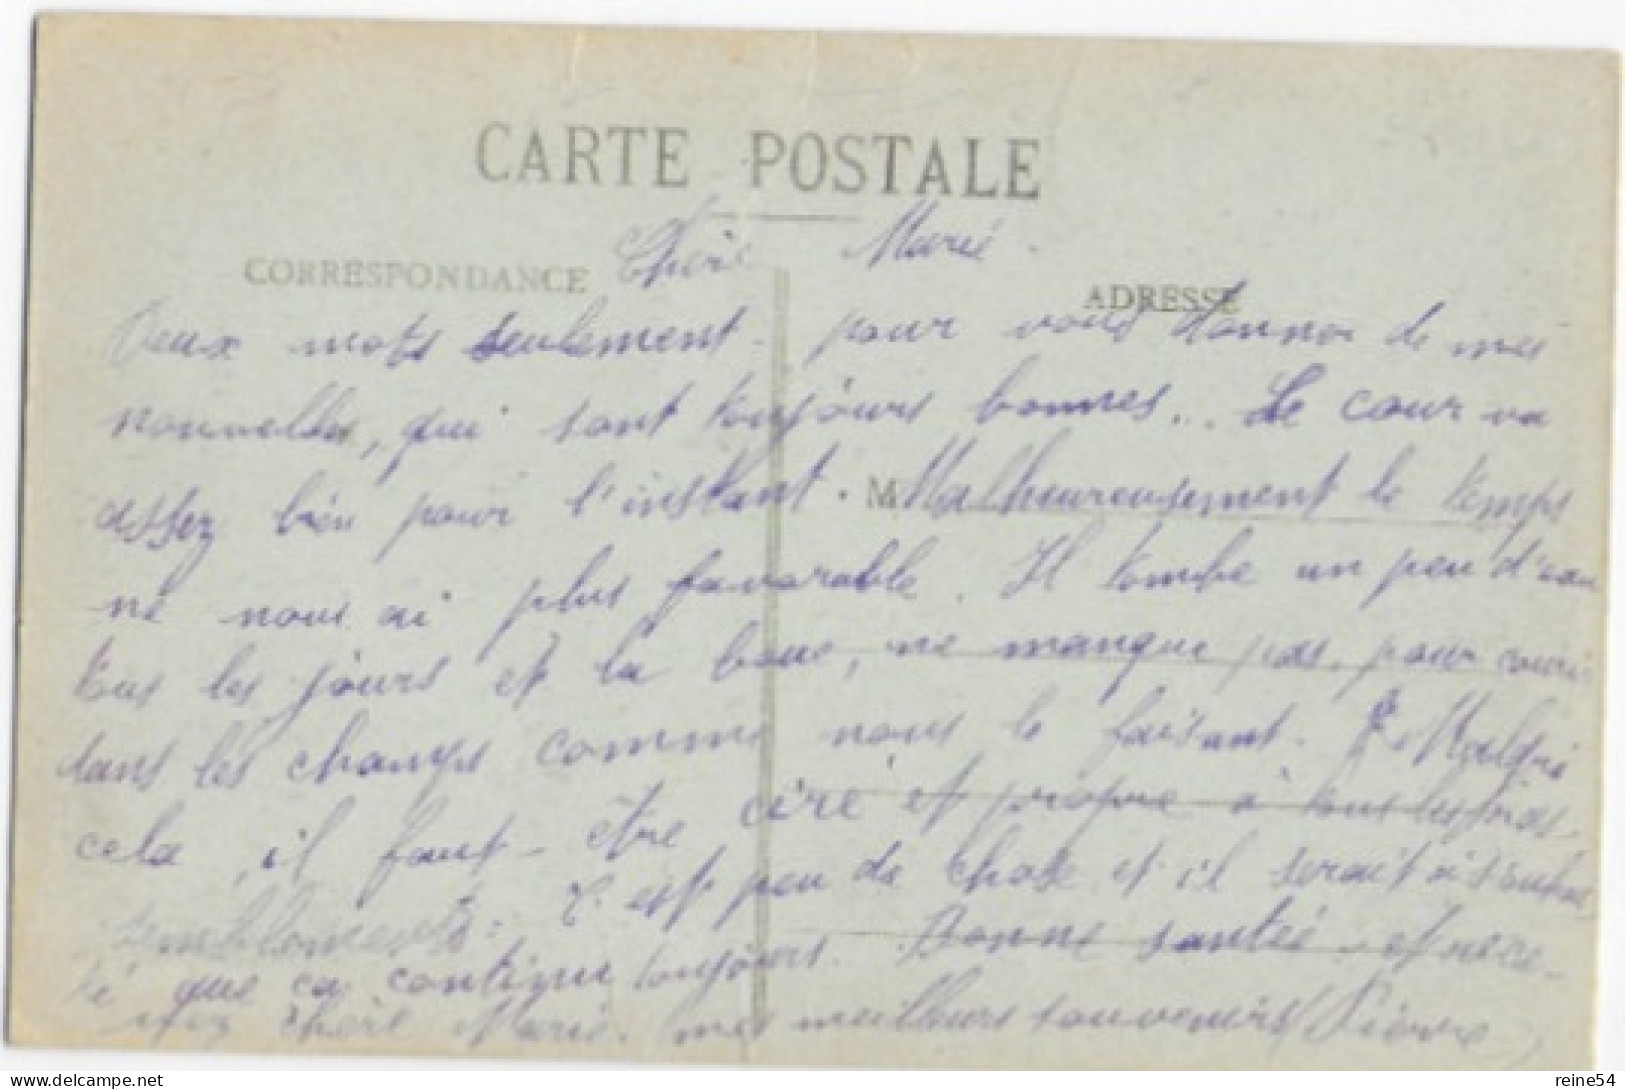 CARTE POSTALE
Chère Marie.
CORRESPONDANCE
ADRESSE
Deux mots seulement. pour vous donner de mes
nouvelles, qui sont toujours bonnes... Le cour va
assez bien pour l'instant. M Malheureusement le temps
ne nous ai plus favorable. Il tombe un peu d'eau
tous les jours et la boue, ne manque pas, pour courir
dans les champs comme nous le faisant. Malgré
cela, il faut être ciré et propre à tous les
C'est peu de chose et il serait à
que ca continue toujours. Bonne santée. et rece-
vez chère Marie. mes meilleurs souvenirs Pierre
delcampe.net
reine54